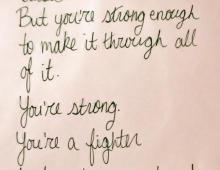 But you're strong enough
to make it through all
of it.
You're strong.
You're a fighter